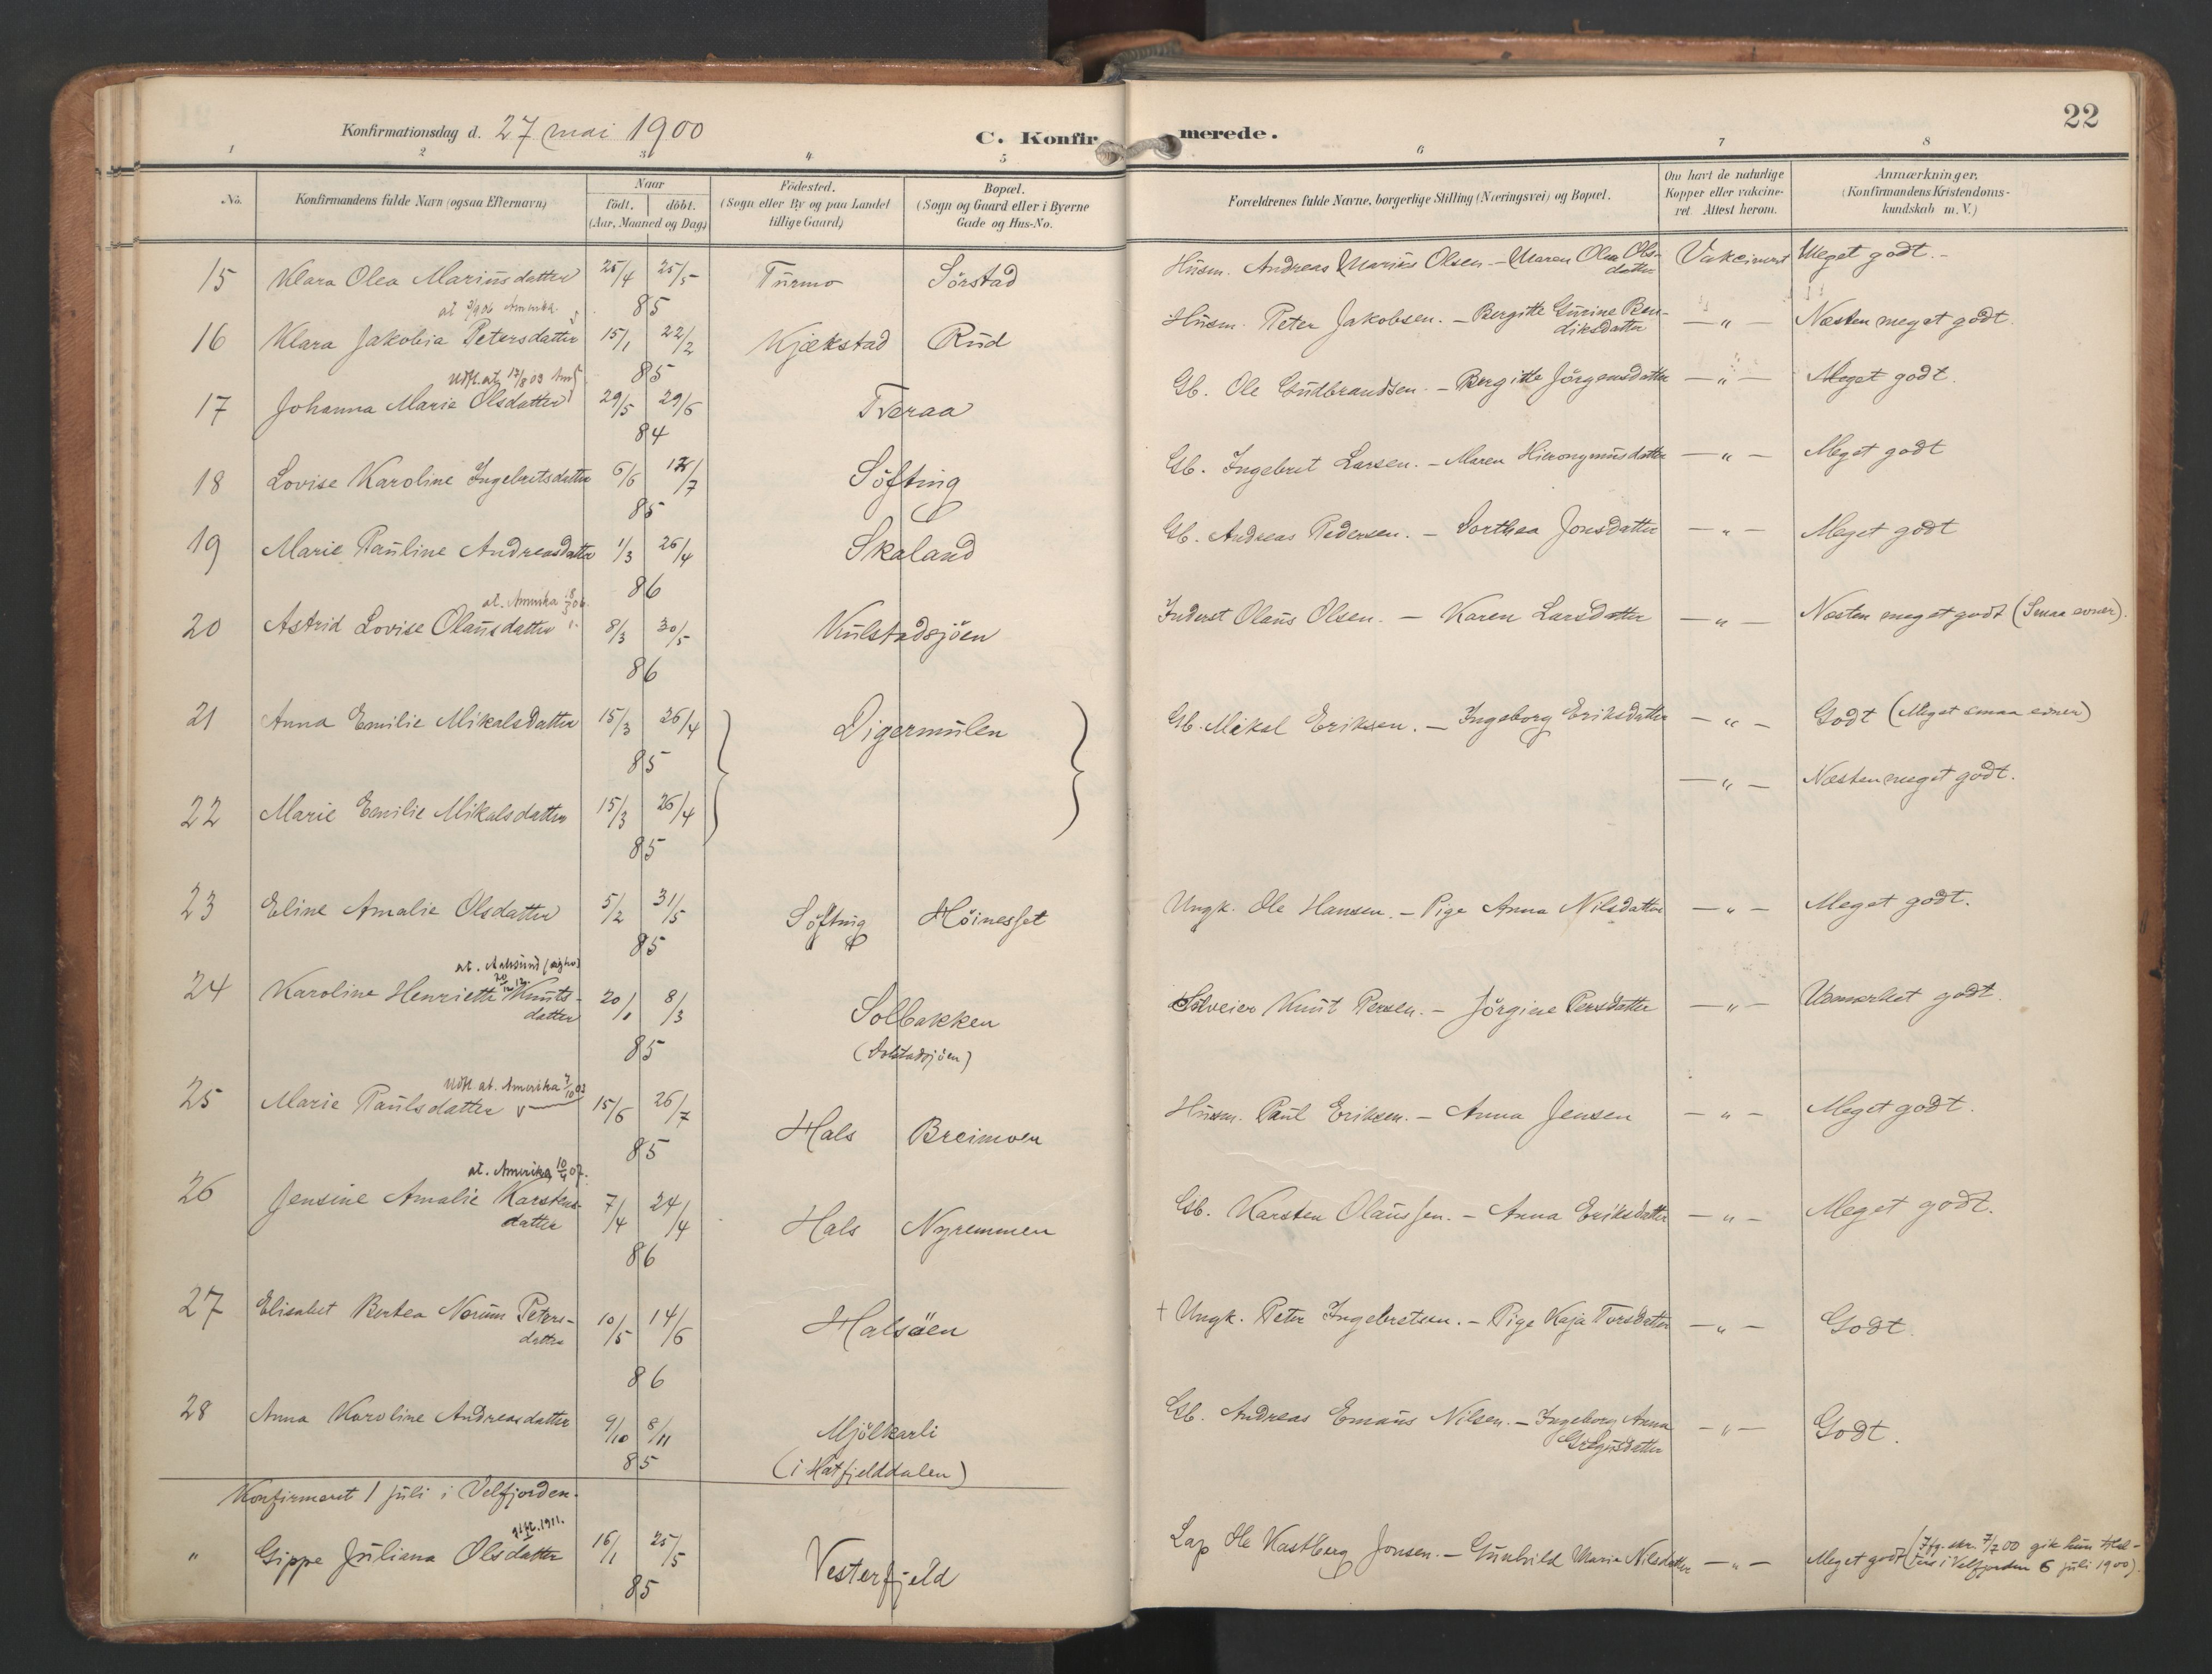 22
Konfirmationsdag d. 27 mai 1900
C. Konfirmerede.
1 2 3 4 5 6 7 8
No.
Konfirmandens fulde Navn (ogsaa Efternavn)
Naar
födt. döbt.
(Aar, Maaned og Dag)
Födested.
(Sogn eller By og paa Landet
tillige Gaard)
Bopæl.
(Sogn og Gaard eller i Byerne
Gade og Hus-No.
Forældrenes fulde Navne, borgerlige Stilling (Næringsvei) og Bopæl.
Om havt de naturlige
Kopper eller vakcine-
ret. Attest herom.
Anmærkninger.
(Konfirmandens Kristendoms-
kundskab m. V.)
15 Klara Olea Mariusdatter 25/4 25/5 85 Turmo Sörstad Husm. Andreas Marius Olsen – Maren Olea Ols-
datter Vakcinert Meget godt. –
at Amerika
16 Klara Jakobia Petersdatter 15/1 22/2 85 Kjækstad Rud Husm. Peter Jakobsen. – Bergitte Gurine Ben-
diksdatter – „ – Næsten meget godt.
Udfl. at. 17/8 03
17 Johanna Marie Olsdatter 29/5 29/6 84 Tveraa Gb. Ole Gudbrandsen. – Bergitte Jörgensdatter – „ – Meget godt.
18 Lovise Karoline Ingebretsdatter 6/6 /7 85 Söfting Gb. Ingebret Larsen. – Maren Hieronymusdatter – „ – Meget godt
19 Marie Pauline Andreasdatter 1/3 26/4 86 Skaland Gb. Andreas Pedersen. – Dorthea Jonsdatter – „ – Meget godt
at. Amerika
20 Astrid Lovise Olausdatter 8/3 30/5 86 Kulstadsjöen Inderst Olaus Olsen. – Karen Larsdatter – „ – Næsten meget godt (Smaa evner).
21 Anna Emilie Mikalsdatter 15/3 26/4 85 Digermulen Gb. Mikal Eriksen. – Ingeborg Eriksdatter – „ – Godt (Meget smaa evner)
22 Marie Emilie Mikalsdatter 15/3 26/4 85 – „ – Næsten meget godt.
23 Eline Amalie Olsdatter 5/2 31/5 85 Söfting Höinesset Ungk. Ole Hansen. – Pige Anna Nilsdatter – „ – Meget godt.
at.
24 Karoline Henriette Knuts-
datter 20/1 8/3 85 Solbakken
(Dolstadsjöen) Selveier Knut Persen. – Jörgine Persdatter – „ – Udmerket godt.
Udfl. at. Amerika 03
25 Marie Paulsdatter 15/6 26/7 85 Hals Breimoen Husm. Paul Eriksen. – Anna Jensen – „ – Meget godt.
at. Amerika 07.
26 Jensine Amalie Karstens-
datter 7/4 24/4 86 Hals Nyremmen Gb. Karsten Olaussen. – Anna Eriksdatter – „ – Meget godt.
27 Elisabet Bertea Norum Peters-
datter 10/5 14/6 86 Halsöen + Ungk. Peter Ingebretsen. – Pige Kaja Torsdatter – „ – Godt.
28 Anna Karoline Andreasdatter 9/10 8/11 85 Mjölkarli
(i Hatfjelddalen) Gb. Andreas Emaus Nilsen. – Ingeborg Anna
Gregusdatter – „ – Godt.
Konfirmeret 1 juli i Velfjorden.
gift. 1911.
„ Gippe Juliana Olsdatter 16/1 25/5 85 Vesterfjeld Lap Ole Kastberg Jonsen. – Gunhild Marie Nilsdatter – „ – Meget godt (Ifg. skr. 7/7 00 gik hun til al-
ters i Velfjorden 6 juli 1900).